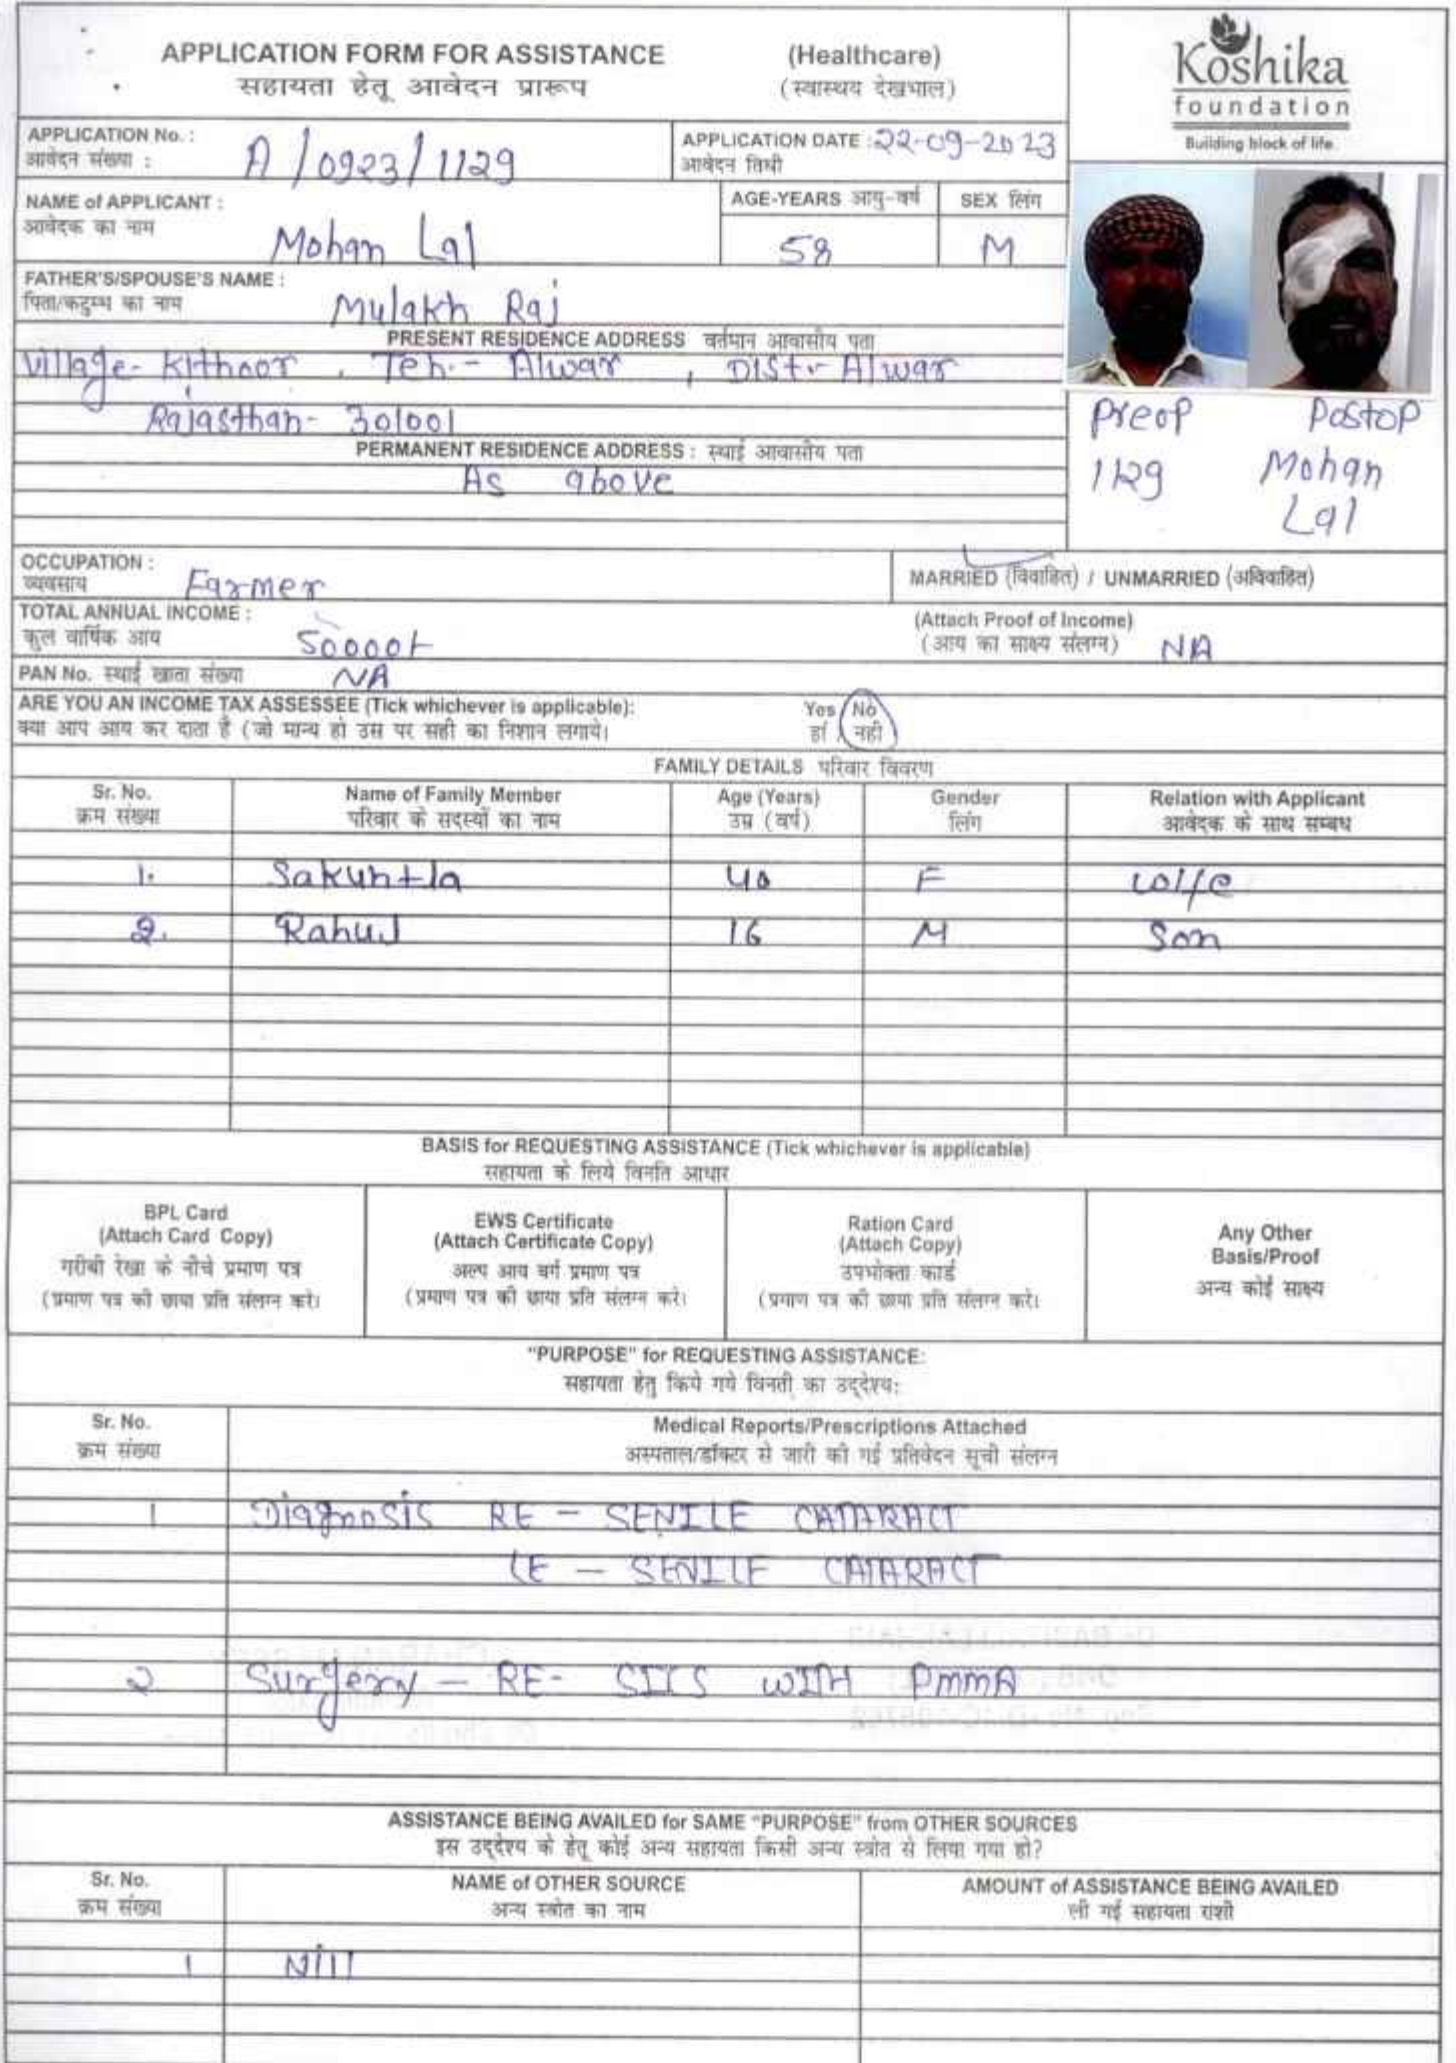 APPLICATION FORM FOR ASSISTANCE (Healthcare)
सहायता हेतू आवेदन प्रारूप (स्वास्थय देखभाल)
Koshika
foundation
Building block of life
APPLICATION No. : A/0923/1129 APPLICATION DATE : 22-09-2023
आवेदन संख्या : आवेदन तिथी
NAME of APPLICANT : AGE-YEARS आयु-वर्ष SEX लिंग
आवेदक का नाम Mohan Lal 58 M
FATHER'S/SPOUSE'S NAME :
पिता/कटुम्ब का नाम Mulakh Raj
PRESENT RESIDENCE ADDRESS वर्तमान आवासीय पता
Village- Kithoor , Teh.- Alwar , Dist.- Alwar
Rajasthan- 301001
PERMANENT RESIDENCE ADDRESS : स्थाई आवासीय पता
As above
Preop Postop
1129 Mohan
Lal
OCCUPATION :
व्यवसाय Farmer MARRIED (विवाहित) / UNMARRIED (अविवाहित)
TOTAL ANNUAL INCOME : (Attach Proof of Income)
कुल वार्षिक आय 50000/- (आय का साक्ष्य संलग्न) NA
PAN No. स्थाई खाता संख्या NA
ARE YOU AN INCOME TAX ASSESSEE (Tick whichever is applicable): Yes / No
क्या आप आय कर दाता है (जो मान्य हो उस पर सही का निशान लगाये। हाँ / नही
FAMILY DETAILS परिवार विवरण
Sr. No. Name of Family Member Age (Years) Gender Relation with Applicant
क्रम संख्या परिवार के सदस्यों का नाम उम्र (वर्ष) लिंग आवेदक के साथ सम्बध
1. Sakuntla 40 F wife
2. Rahul 16 M Son
BASIS for REQUESTING ASSISTANCE (Tick whichever is applicable)
सहायता के लिये विनति आधार
BPL Card
(Attach Card Copy)
गरीबी रेखा के नीचे प्रमाण पत्र
(प्रमाण पत्र की छाया प्रति संलग्न करे।
EWS Certificate
(Attach Certificate Copy)
अल्प आय वर्ग प्रमाण पत्र
(प्रमाण पत्र की छाया प्रति संलग्न करे।
Ration Card
(Attach Copy)
उपभोक्ता कार्ड
(प्रमाण पत्र की छाया प्रति संलग्न करे।
Any Other
Basis/Proof
अन्य कोई साक्ष्य
"PURPOSE" for REQUESTING ASSISTANCE:
सहायता हेतु किये गये विनती का उद्देश्य:
Sr. No. Medical Reports/Prescriptions Attached
क्रम संख्या अस्पताल/डॉक्टर से जारी की गई प्रतिवेदन सूची संलग्न
1 Diagnosis RE - SENILE CATARACT
LE - SENILE CATARACT
2 Surgery - RE- SICS WITH PMMA
ASSISTANCE BEING AVAILED for SAME "PURPOSE" from OTHER SOURCES
इस उद्देश्य के हेतू कोई अन्य सहायता किसी अन्य स्त्रोत से लिया गया हो?
Sr. No. NAME of OTHER SOURCE AMOUNT of ASSISTANCE BEING AVAILED
क्रम संख्या अन्य स्त्रोत का नाम ली गई सहायता राशी
1 Nill